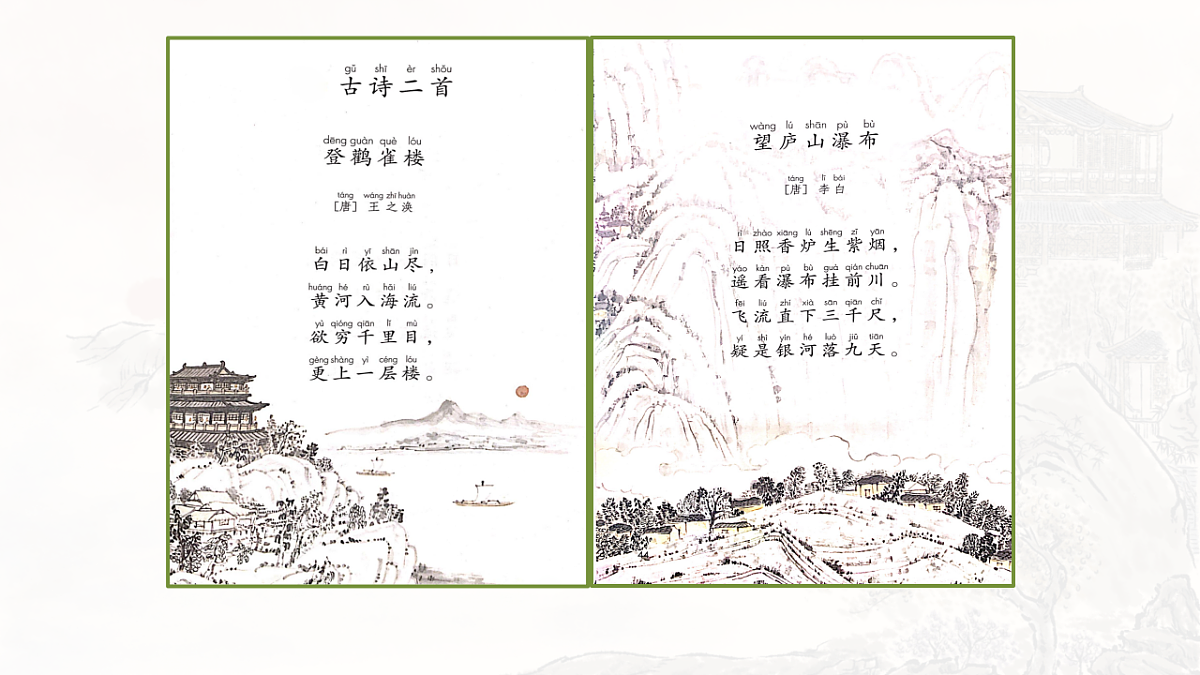 gǔ shī èr shǒu
古诗二首
dēng guàn què lóu
登鹳雀楼
táng wáng zhī huàn
［唐］ 王之涣
bái rì yī shān jìn
白日依山尽，
huáng hé rù hǎi liú
黄河入海流。
yù qióng qiān lǐ mù
欲穷千里目，
gèng shàng yì céng lóu
更上一层楼。
wàng lú shān pù bù
望庐山瀑布
táng lǐ bái
［唐］ 李白
rì zhào xiāng lú shēng zǐ yān
日照香炉生紫烟，
yáo kàn pù bù guà qián chuān
遥看瀑布挂前川。
fēi liú zhí xià sān qiān chǐ
飞流直下三千尺，
yí shì yín hé luò jiǔ tiān
疑是银河落九天。